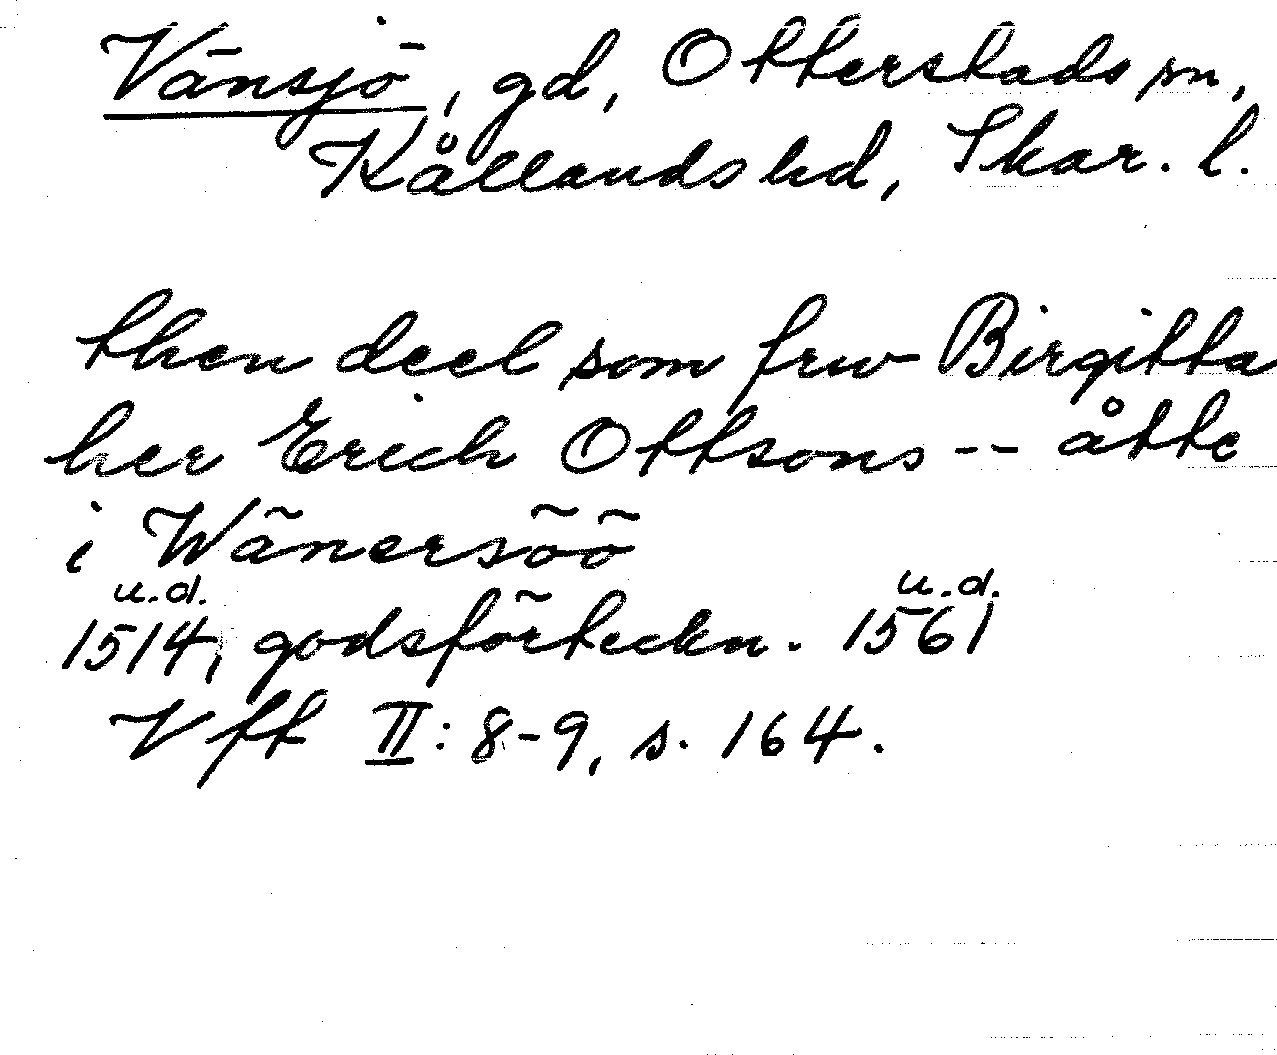 Vänsjö, gd, Otterstads sn,
Kållands hd, Skar. l.
then deel som frw Birgitta
her Erich Ottsons -- åtte
i Wänersöö
u.d. u.d.
1514, godsförteckn. 1561
Vft II: 8-9, s. 164.